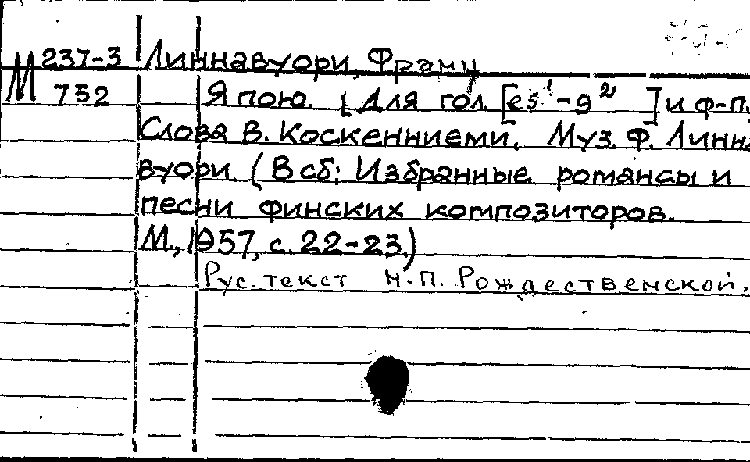 М 237-3 Линнавуори, Франц
752 Я пою. [Для гол. [es¹-g²] и ф-п.
Слова В. Коскенниеми. Муз. Ф. Линна
вуори. (В сб: Избранные романсы и
песни финских композиторов.
М., 1957, с. 22-23.)
Рус. текст Н.П. Рождественской.